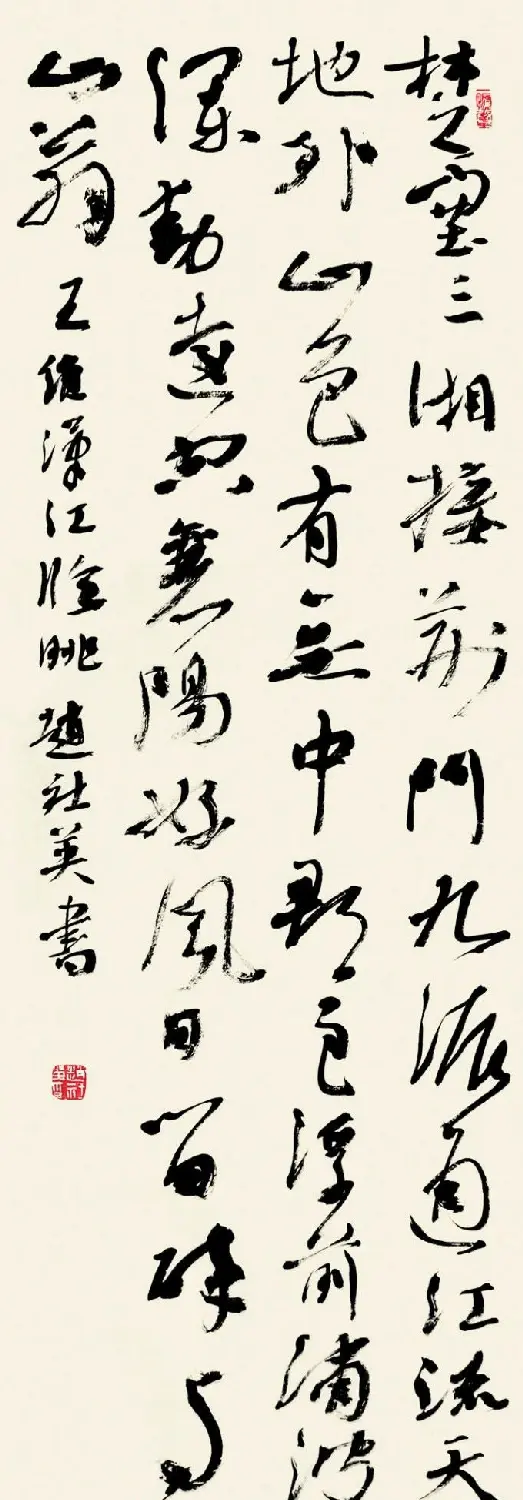 楚塞三湘接荆門九派通江流天
地外山色有無中郡邑浮前浦波
瀾動遠空襄陽好風日留醉与
山翁 王維漢江臨眺 趙社英書